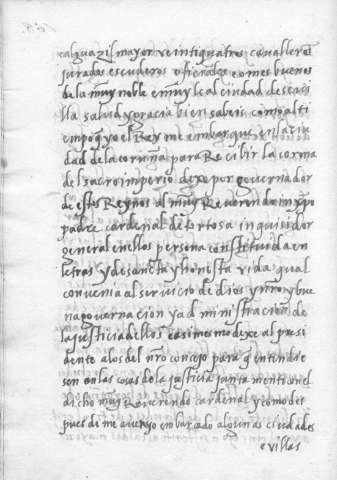 alguazil mayor veintiquatros cavalleros
jurados escuderos oficiales e omes buenos
de la muy noble e muy leal ciudad de sevi
lla salud y gracia bien sabeis como al ti
empo q yo el Rey me embarque en la ciu
dad de la coruña para Recibir la corona
del sacro imperio dexe por governador
de estos Reynos al muy Reverendo in xpo
padre cardenal de tortosa inquisidor
general en ellos persona constituida en
letras y de sancta y honesta vida qual
convenia al servicio de dios y nro y bue
na governacion y administracion de
la justicia dellos e asimesmo dexe al presi
dente a los del nro consejo para q entendie
sen en las cosas de la justicia juntamente con el
dicho muy Reverendo cardenal y como des
pues de me aver yo embarcado algunas ciudades
e villas